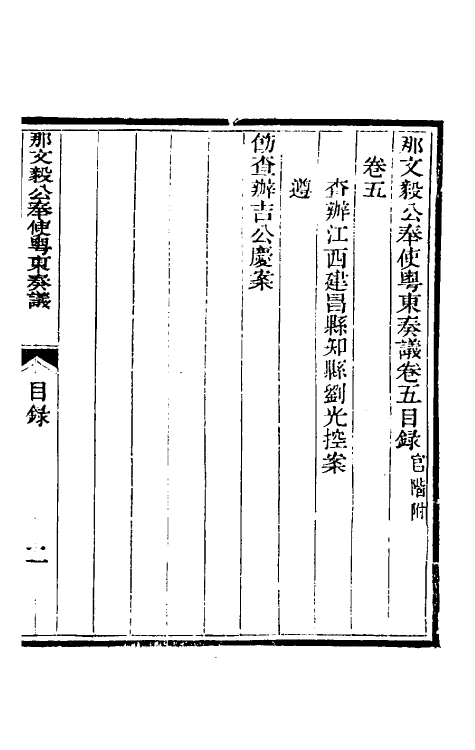 那文毅公奉使粤東奏議卷五目録官階附
卷五
查辦江西建昌縣知縣劉光控案
遵
飭查辦吉公慶案
那文毅公奉使粤東奏議
目録
二